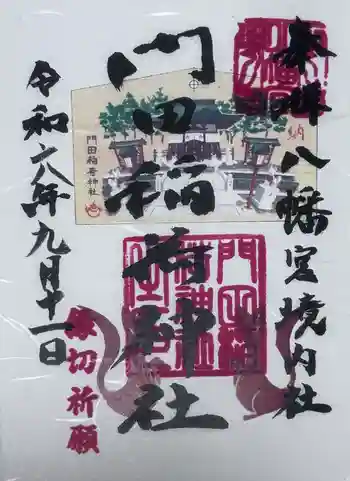 奉拝 八幡宮境内社
門田稲荷神社
令和六年九月十一日
縁切祈願
門田稲荷神社
奉納
門田稲荷神社